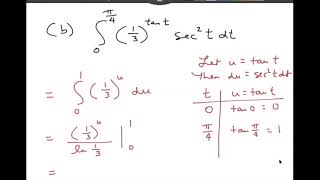 (b) ∫₀^{π/4} (1/3)^{tan t} sec² t dt
Let u = tan t
Then du = sec² t dt
= ∫₀¹ (1/3)^u du
t | u = tan t
0 | tan 0 = 0
π/4 | tan π/4 = 1
= (1/3)^u / ln 1/3 |₀¹
=